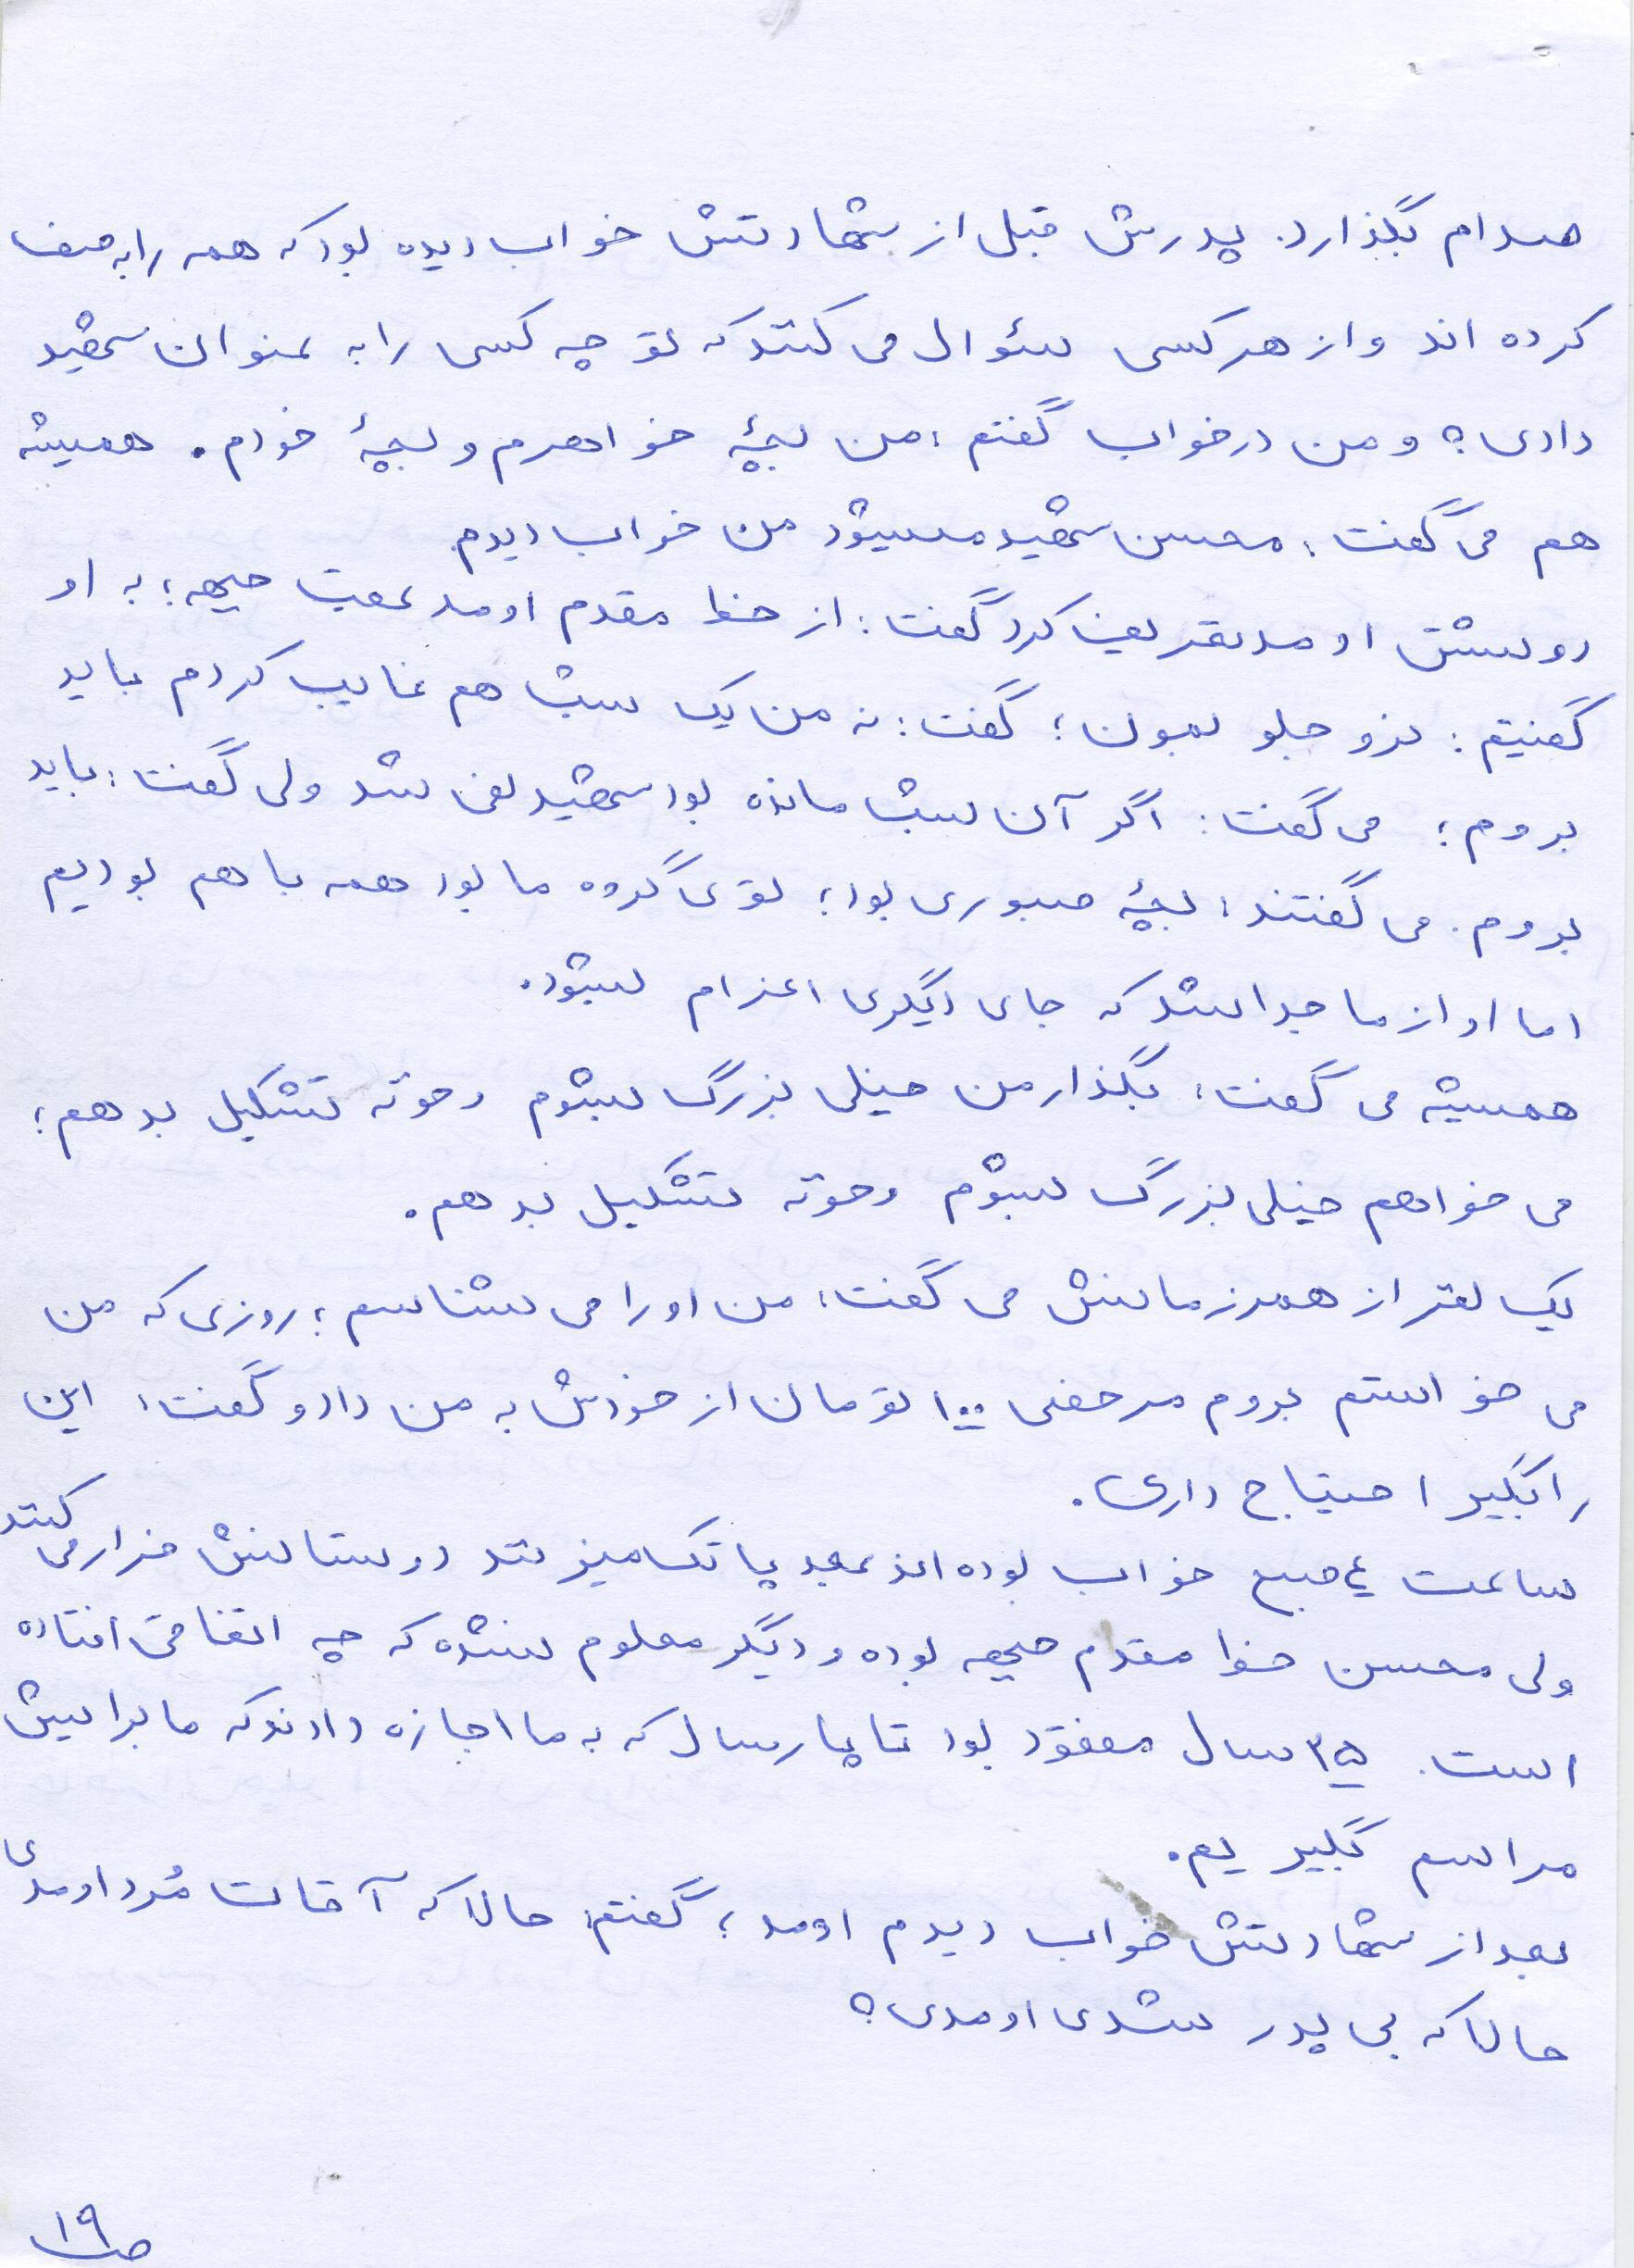 صدام بگذارد. پدرش قبل از شهادتش خواب دیده بود که همه را به صف
کرده اند و از هر کسی سئوال می کنند که تو چه کسی را به عنوان شهید
دادی؟ و من در خواب گفتم: من بچهٔ خواهرم و بچهٔ خودم. همیشه
هم می گفت: محسن شهید میشود من خواب دیدم.
دوستش اومد تعریف کرد گفت: از خط مقدم اومد عقب جبهه؛ به او
گفتیم: نرو جلو بمون؛ گفت: نه من یک شب هم غایب کردم باید
بروم؛ می گفت: اگر آن شب مانده بود شهید نمی شد ولی گفت: باید
بروم. می گفتند: بچهٔ صبوری بود؛ توی گروه ما بود همه با هم بودیم
اما او از ما جدا شد که جای دیگری اعزام بشود.
همیشه می گفت: بگذار من خیلی بزرگ بشوم دعوته تشکیل بدهم؛
می خواهم خیلی بزرگ بشوم دعوته تشکیل بدهم.
یک نفر از همرزمانش می گفت: من او را می شناسم؛ روزی که من
می خواستم بروم مرخصی ۱۰۰ تومان از خودش به من داد و گفت: این
را بگیر احتیاج داری.
ساعت ٤ صبح خواب بوده اند بعد پاتک میزنند دوستانش فرار می کنند
ولی محسن خط مقدم جبهه بوده و دیگر معلوم نشده که چه اتفاقی افتاده
است. ۳۵ سال مفقود بود تا پارسال که به ما اجازه دادند که ما برایش
مراسم بگیریم.
بعد از شهادتش خواب دیدم اومد؛ گفتم: حالا که آقات مُرد اومدی
حالا که بی پدر شدی اومدی؟
ص ۱۹